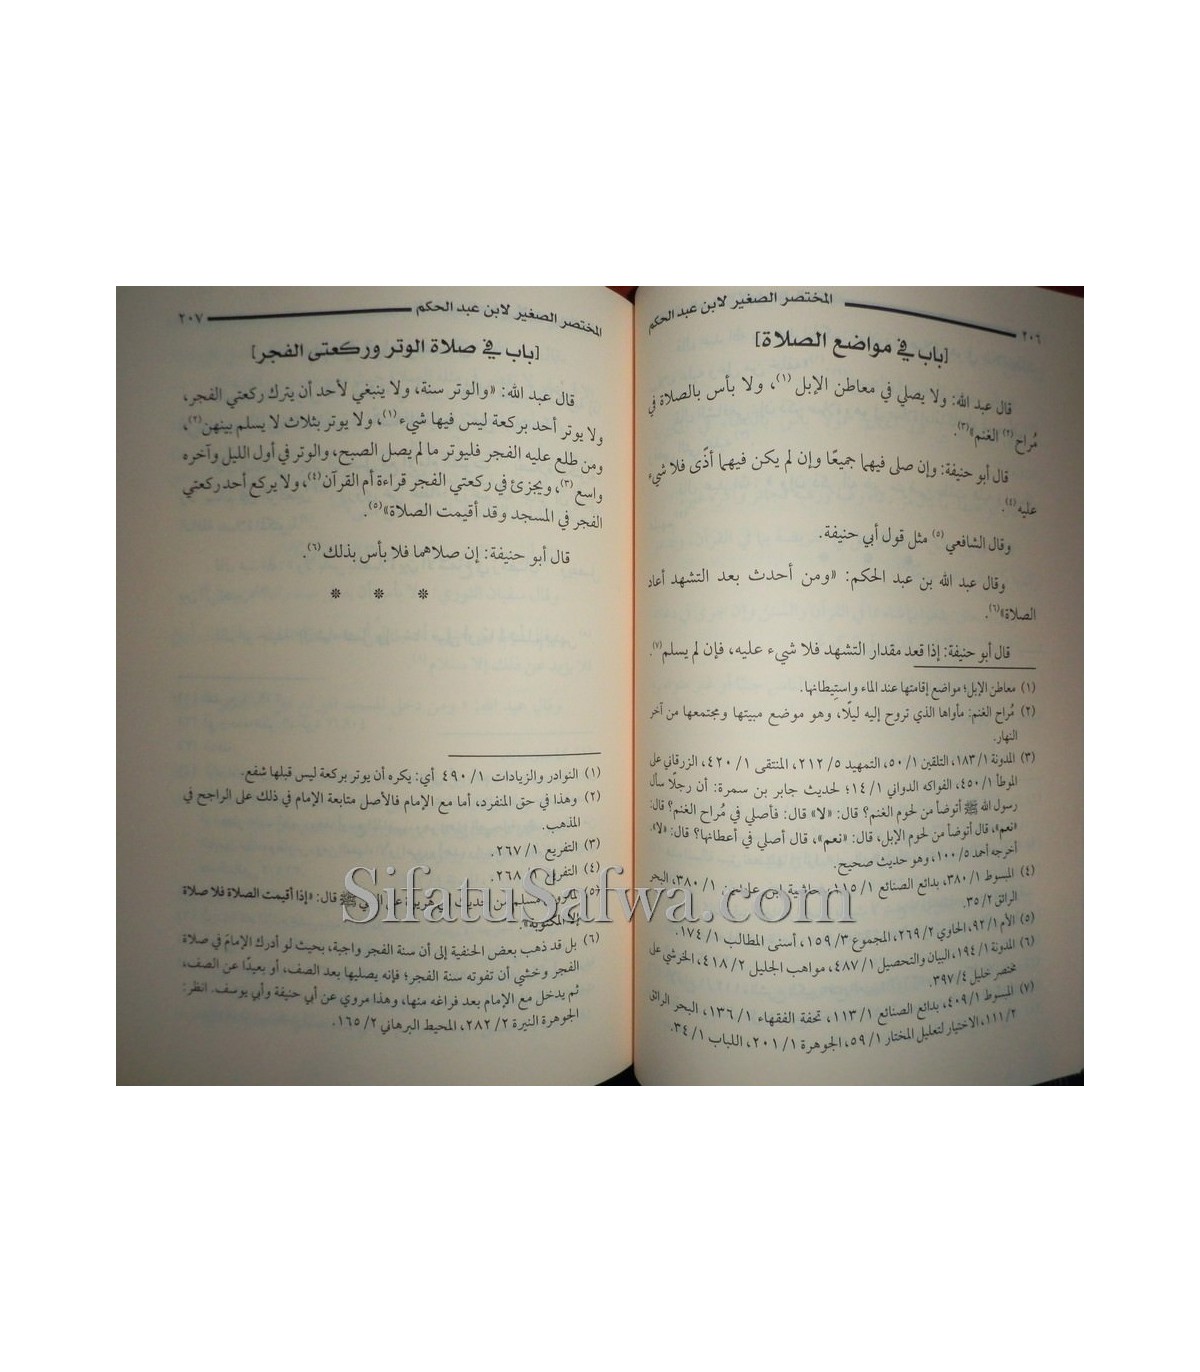 ٢٠٦ المختصر الصغير لابن عبد الحكم
[باب في مواضع الصلاة]
قال عبد الله: ولا يصلي في معاطن الإبل(١)، ولا بأس بالصلاة في
مُراح(٢) الغنم»(٣).
قال أبو حنيفة: وإن صلى فيهما جميعًا وإن لم يكن فيهما أذًى فلا شيء
عليه(٤).
وقال الشافعي(٥) مثل قول أبي حنيفة.
وقال عبد الله بن عبد الحكم: «ومن أحدث بعد التشهد أعاد
الصلاة»(٦).
قال أبو حنيفة: إذا قعد مقدار التشهد فلا شيء عليه، فإن لم يسلم(٧).
(١) معاطن الإبل؛ مواضع إقامتها عند الماء واستِيطانها.
(٢) مُراح الغنم: مأواها الذي تروح إليه ليلًا، وهو موضع مبيتها ومجتمعها من آخر
النهار.
(٣) المدونة ١/ ١٨٣، التلقين ١/ ٥٠، التمهيد ٥/ ٢١٢، المنتقى ١/ ٤٢٠، الزرقاني على
الموطأ ١/ ٤٥٠، الفواكه الدواني ١/ ١٤؛ لحديث جابر بن سمرة: أن رجلًا سأل
رسول الله ﷺ أتوضأ من لحوم الغنم؟ قال: «لا» قال: فأصلي في مُراح الغنم؟ قال:
«نعم»، قال أتوضأ من لحوم الإبل، قال: «نعم»، قال أصلي في أعطانها؟ قال: «لا».
أخرجه أحمد ٥/ ١٠٠، وهو حديث صحيح.
(٤) المبسوط ١/ ٣٨٠، بدائع الصنائع ١/ ١١٥، حاشية ابن عابدين ١/ ٣٨٠، البحر
الرائق ٢/ ٣٥.
(٥) الأم ١/ ٩٢، الحاوي ٢/ ٢٦٩، المجموع ٣/ ١٥٩، أسنى المطالب ١/ ١٧٤.
(٦) المدونة ١/ ١٩٤، البيان والتحصيل ١/ ٤٨٧، مواهب الجليل ٢/ ٤١٨، الخرشي على
مختصر خليل ٤/ ٣٩٧.
(٧) المبسوط ١/ ٤٠٩، بدائع الصنائع ١/ ١١٣، تحفة الفقهاء ١/ ١٣٦، البحر الرائق
٢/ ١١١، الاختيار لتعليل المختار ١/ ٥٩، الجوهرة ١/ ٢٠١، اللباب ١/ ٣٤.
المختصر الصغير لابن عبد الحكم ٢٠٧
[باب في صلاة الوتر وركعتى الفجر]
قال عبد الله: «والوتر سنة، ولا ينبغي لأحد أن يترك ركعتي الفجر،
ولا يوتر أحد بركعة ليس فيها شيء(١)، ولا يوتر بثلاث لا يسلم بينهن(٢)،
ومن طلع عليه الفجر فليوتر ما لم يصل الصبح، والوتر في أول الليل وآخره
واسع(٣)، ويجزئ في ركعتي الفجر قراءة أم القرآن(٤)، ولا يركع أحد ركعتي
الفجر في المسجد وقد أقيمت الصلاة»(٥).
قال أبو حنيفة: إن صلاهما فلا بأس بذلك(٦).
* * *
(١) النوادر والزيادات ١/ ٤٩٠ أي: يكره أن يوتر بركعة ليس قبلها شفع.
(٢) وهذا في حق المنفرد، أما مع الإمام فالأصل متابعة الإمام في ذلك على الراجح في
المذهب.
(٣) التفريع ١/ ٢٦٧.
(٤) التفريع ١/ ٢٦٨.
(٥) مسلم من حديث أبي هريرة عن النبي ﷺ قال: «إذا أقيمت الصلاة فلا صلاة
إلا المكتوبة».
(٦) بل قد ذهب بعض الحنفية إلى أن سنة الفجر واجبة، بحيث لو أدرك الإمام في صلاة
الفجر وخشي أن تفوته سنة الفجر؛ فإنه يصليها بعد الصف، أو بعيدًا عن الصف،
ثم يدخل مع الإمام بعد فراغه منها، وهذا مروي عن أبي حنيفة وأبي يوسف. انظر:
الجوهرة النيرة ٢/ ٢٨٢، المحيط البرهاني ٢/ ١٦٥.
SifatuSafwa.com